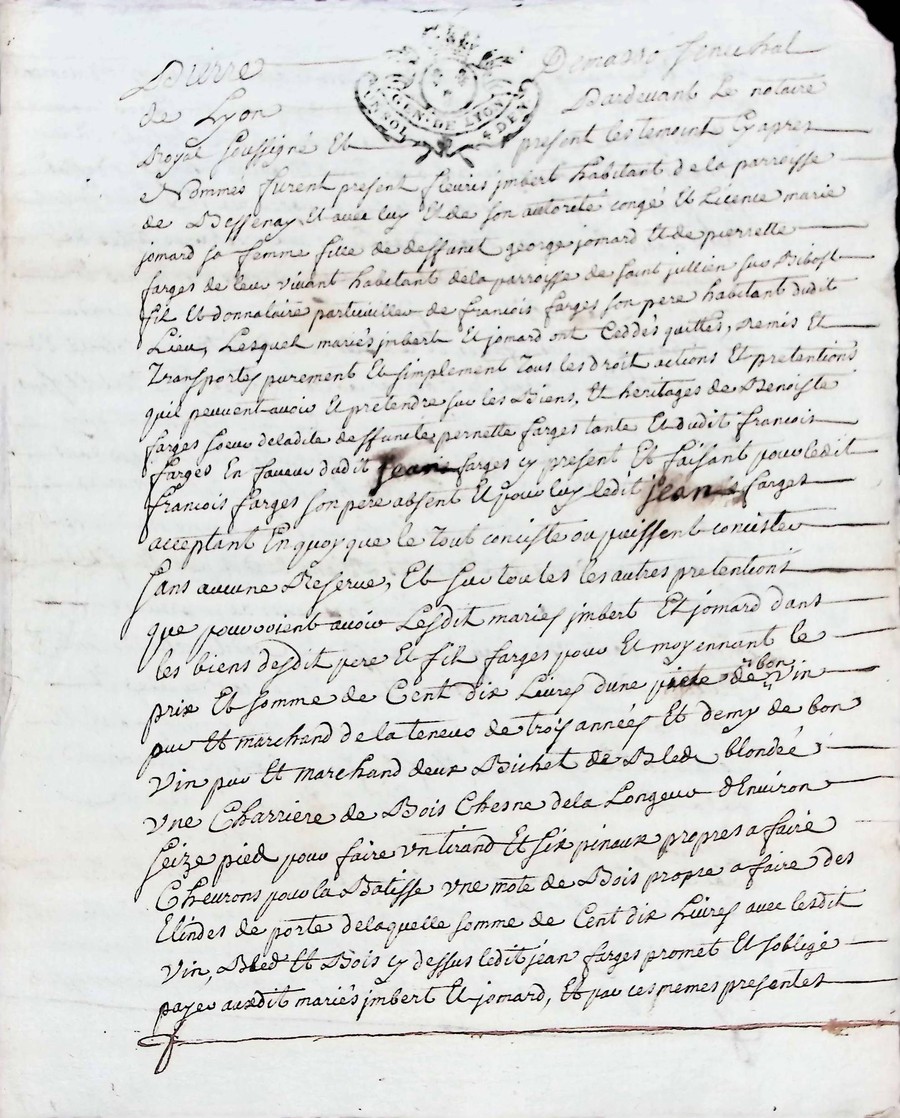 Pierre Demasso Senechal
de Lyon Pardevant Le notaire
Royal soussigné Et present les temoint Cy apres
Nommes furent present fleuris jmbert habitant de la parroisse
de Bessenay Et avec luy Et de son autorité congé Et Licence marie
jomard sa femme fille de deffunct george jomard Et de pierrette
farges de leur vivant habitant dela parroisse de saint jullien sur Bibost
fil Et donnataire de francois farges son pere habitant dudit
Lieu, Lesquel mariés jmbert Et jomard ont Ceddés quittes, Remis Et
Transportes purement Et simplement Tous les droit actions Et pretentions
quil peuvent avoir Et pretendre sur les Biens, Et heritages de Benoiste
farges soeur deladite deffuncte pernette farges tante Et dudit francois
farges En faveur dudit jean farges cy present Et faisant pour ledit
francois farges son pere absent Et pour luy ledit jean farges
acceptant En quoy que le Tout conciste ou puissent concister
sans aucune Reserve, Et sur toutes les autres pretentions
que pouvoient avoir Lesdit mariés jmbert Et jomard dans
les biens desdit pere Et fil farges pour Et moyennant le
prix Et somme de Cent dix Livres dune de bon vin
pur Et marchand de la teneur de trois années Et demy de bon
Vin pur Et marchand deux Bichet de Bled blondée,
Vne Charriere de Bois Chesne dela Longeur d'Environ
seize pied pour faire vn tirand Et six pinaux propres a faire
Cheurons pour la Batisse Vne mote de Bois propre a faire des
de porte delaquelle somme de Cent dix Livres avec lesdit
Vin, Bled Et Bois cy dessus ledit jean farges promet Et soblige
payer auxdit mariés jmbert Et jomard, Et par ces memes presentes